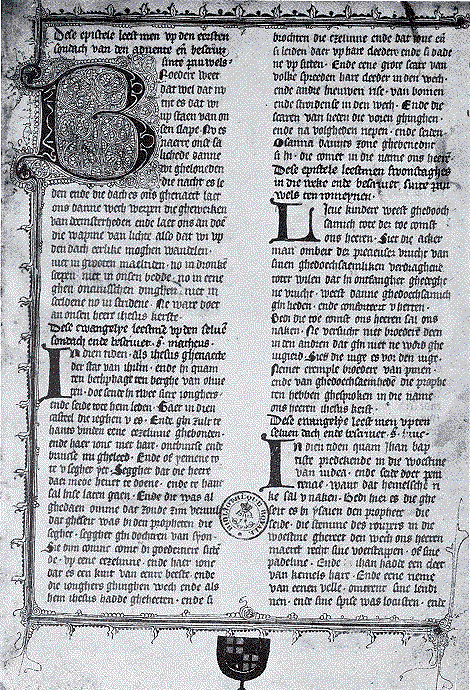 Dese epistele leest men vp den eersten
sondach van den aduente en̄ bescriuet
sinte pauwels
Broedere weet
dat wel dat nv
nv es dat wi
vp staen van on
sen slape Nv es
naerre onse sa
lichede danne
wi gheloueden
die nacht es le
den ende die dach es ons ghenaect laet
ons danne wech werpen die ghewerken
van deemsterheden ende laet ons an doē
die wapine van lichte also dat wi vp
den dach eerlike moghen wandelen
niet in grooten maeltiden no in dronkē
scepen niet in onsen bedde no in eene
ghen oncuusschen dinghen niet in
sceldene no in stridene Ne ware doet
an onsen heere ihesus kerste
Dese ewangelye leestmē vp den seluē
sondach ende bescriuet s. matheus
In dien tiden als ihesus ghenaecte
der stat van iherusalem ende hi quam
ten bethphage ten berghe van oliue
ten doe sende hi twee siere iongheren
ende seide tote hem leden Gaet in dien
casteel die ieghen v es Ende ghi sult te
hants vinden eene ezelinne ghebonden
ende haer ionc met hare ontbintse ende
bringse mi gheleed Ende of yement yet
te v segher yet Segghet dat die heere
daer mede heuet te doene ende te hant
sal hise laten gaen Ende dit was al
ghedaen omme dat zoude zijn veruult
dat gheseit was bi den propheten die
seghet segghet ghi dochteren van syon
Sie dijn coninc comt di goedertiere sittē
de vp eene ezelinne ende haer ionc
dat es een kint van eenre beeste ende
die iongheren ghinghen wech ende als
hem ihesus hadde gheheeten ende si
brochten die ezelinne ende dat ionc en̄
si leiden daer vp hare cleeder ende si dadē
ne vp sitten Ende eene groet scaer van
volke spreeden hare cleeder in den wech
ende andre hieuwen rise van bomen
ende stroidense in den wech Ende die
scaren van lieden die voren ghinghen
ende na volgheden riepen ende seiden
Osanna dauids zone ghebenedijt
si hi die comet in die name ons heerē
Dese epistele leestmen swonsdaghes
in die weke ende bescriuet sinte pau
wels ten romeynen
Lieue kinder weest ghedoech
samich tote der toe comst
ons heeren Siet die acker
man ombeit der precieuser vrucht van
sinen ghedoochsamelike verdraghene
tote wilen dat hi ontfanghet ghetieghe
ne vrucht weest danne ghedoochsamich
ghi heden ende confoorteert v herten
Bedi die toe comst ons heeren sal ons
naken Ne versuct niet broeders een
in ten andren dat ghi niet ne wort ghe
iugiert Sies die iuge es vor den iuge
Nemet exemple broeder van pinen
ende van ghedoochsamheide die prophe
ten hebben ghesproken in die name
ons heeren ihesus kerst
Dese ewangelye leest men vpten
seluen dach ende bescriuet s. luuc
In dien tiden quam Ihan bap
tiste predeckende in die woestine
van iudea ende seide doet peni
tencie want dat hemelsche ri
ke sal v naken Bedi hi es die ghe
seit es bi ysaien den prophete die
seide die stemme des roupers in die
woestine ghereet den wech ons heeren
maect recht sine voetstapen of sine
padeline Ende ihan hadde een cleet
van kemels hare Ende eene rieme
van eenen velle ommetrent sine lendi
nen ende sine spise was locusten ende